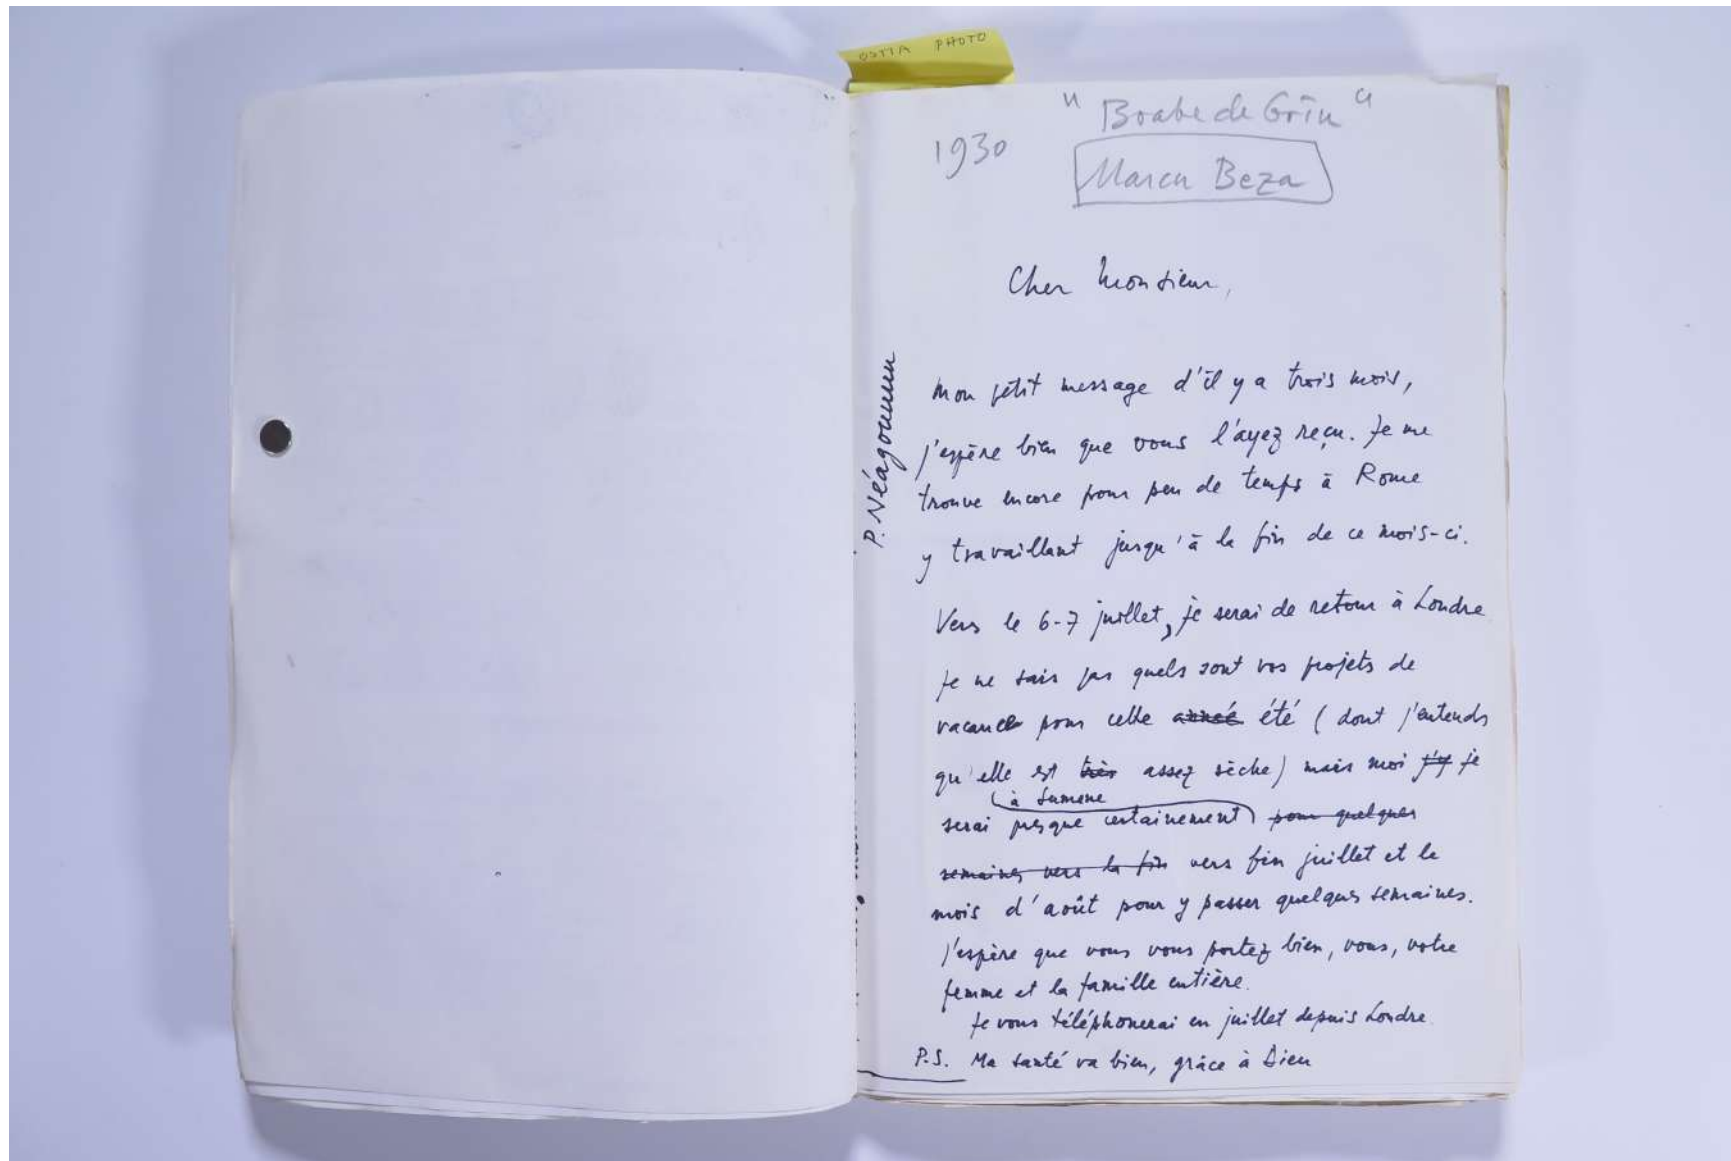 OSTIA PHOTO
" Boabe de Grîu "
1930
Marcu Beza
Cher Monsieur,
P. Néagoumu
Mon pétit message d'il y a trois mois,
j'espère bien que vous l'ayez reçu. Je me
trouve encore pour peu de temps à Rome
y travaillant jusqu'à la fin de ce mois-ci.
Vers le 6-7 juillet, je serai de retour à Londre
Je ne sais pas quels sont vos projets de
vacance pour cette année été (dont j'entends
qu'elle est très assez sèche) mais moi j'y je
à Sumene
serai presque certainement pour quelques
semaines vers la fin vers fin juillet et le
mois d'août pour y passer quelques semaines.
J'espère que vous vous portez bien, vous, votre
femme et la famille entière.
Je vous téléphonerai en juillet depuis Londre.
P.S. Ma santé va bien, grâce à Dieu